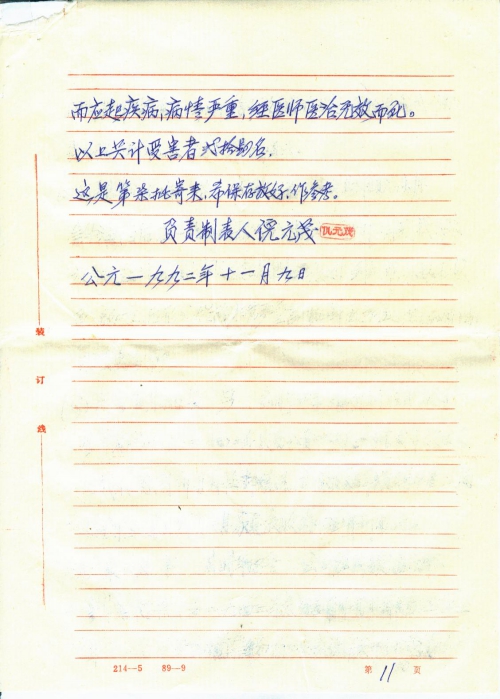 而应起疾病,病情严重,经医师医治无效而死。
以上共计受害者 拾 名.
这是第柒批寄来,希保存放好,作参考。
负责制表人倪元茂
倪元茂
公元一九九二年十一月九日
装
订
线
214—5 89—9
第 11 页